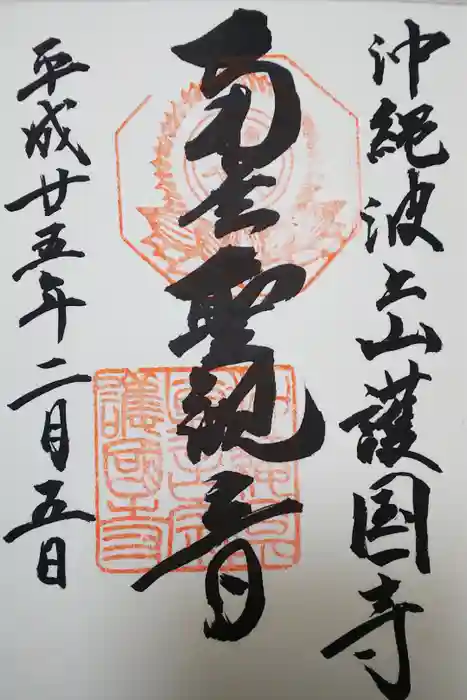 沖縄波上山護国寺
南無聖観音
平成廿五年二月五日
護國寺